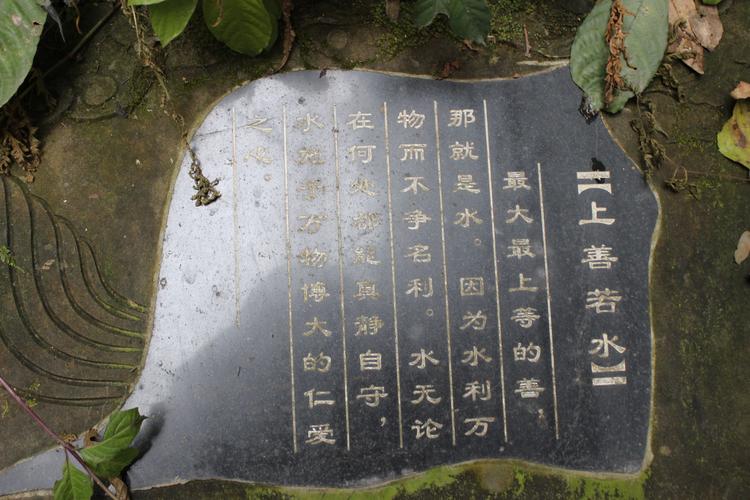 【上善若水】
最大最上等的善，
那就是水。因为水利万
物而不争名利。水无论
在何处都能真静自守，
水施予万物博大的仁爱
之心。